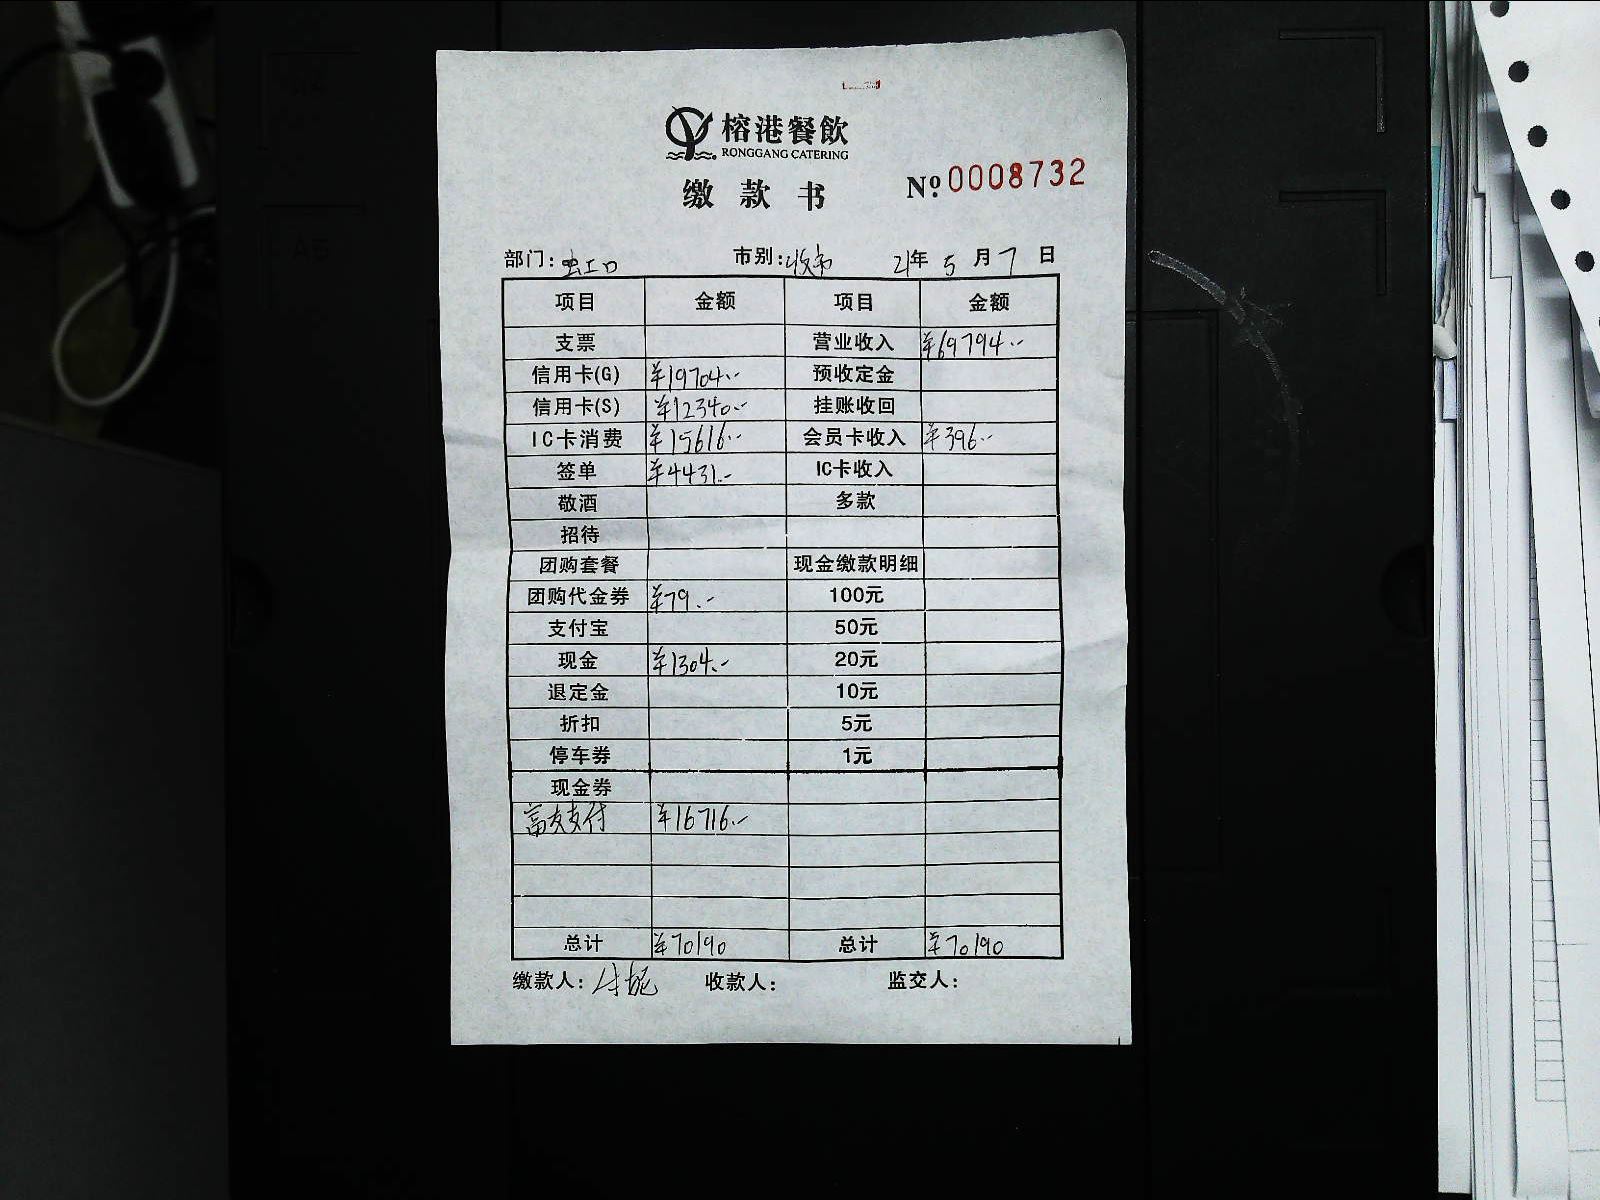 榕港餐飲
RONGGANG CATERING
缴款书 № 0008732
部门: 虹口 市别: 收市 21年 5月 7日
项目 金额 项目 金额
支票 营业收入 ¥69794.-
信用卡(G) ¥19704.- 预收定金
信用卡(S) ¥12340.- 挂账收回
IC卡消费 ¥15616.- 会员卡收入 ¥396.-
签单 ¥4431.- IC卡收入
敬酒 多款
招待
团购套餐 现金缴款明细
团购代金券 ¥79.- 100元
支付宝 50元
现金 ¥1304.- 20元
退定金 10元
折扣 5元
停车券 1元
现金券
富友支付 ¥16716.-
总计 ¥70190 总计 ¥70190
缴款人: 收款人: 监交人:
A5